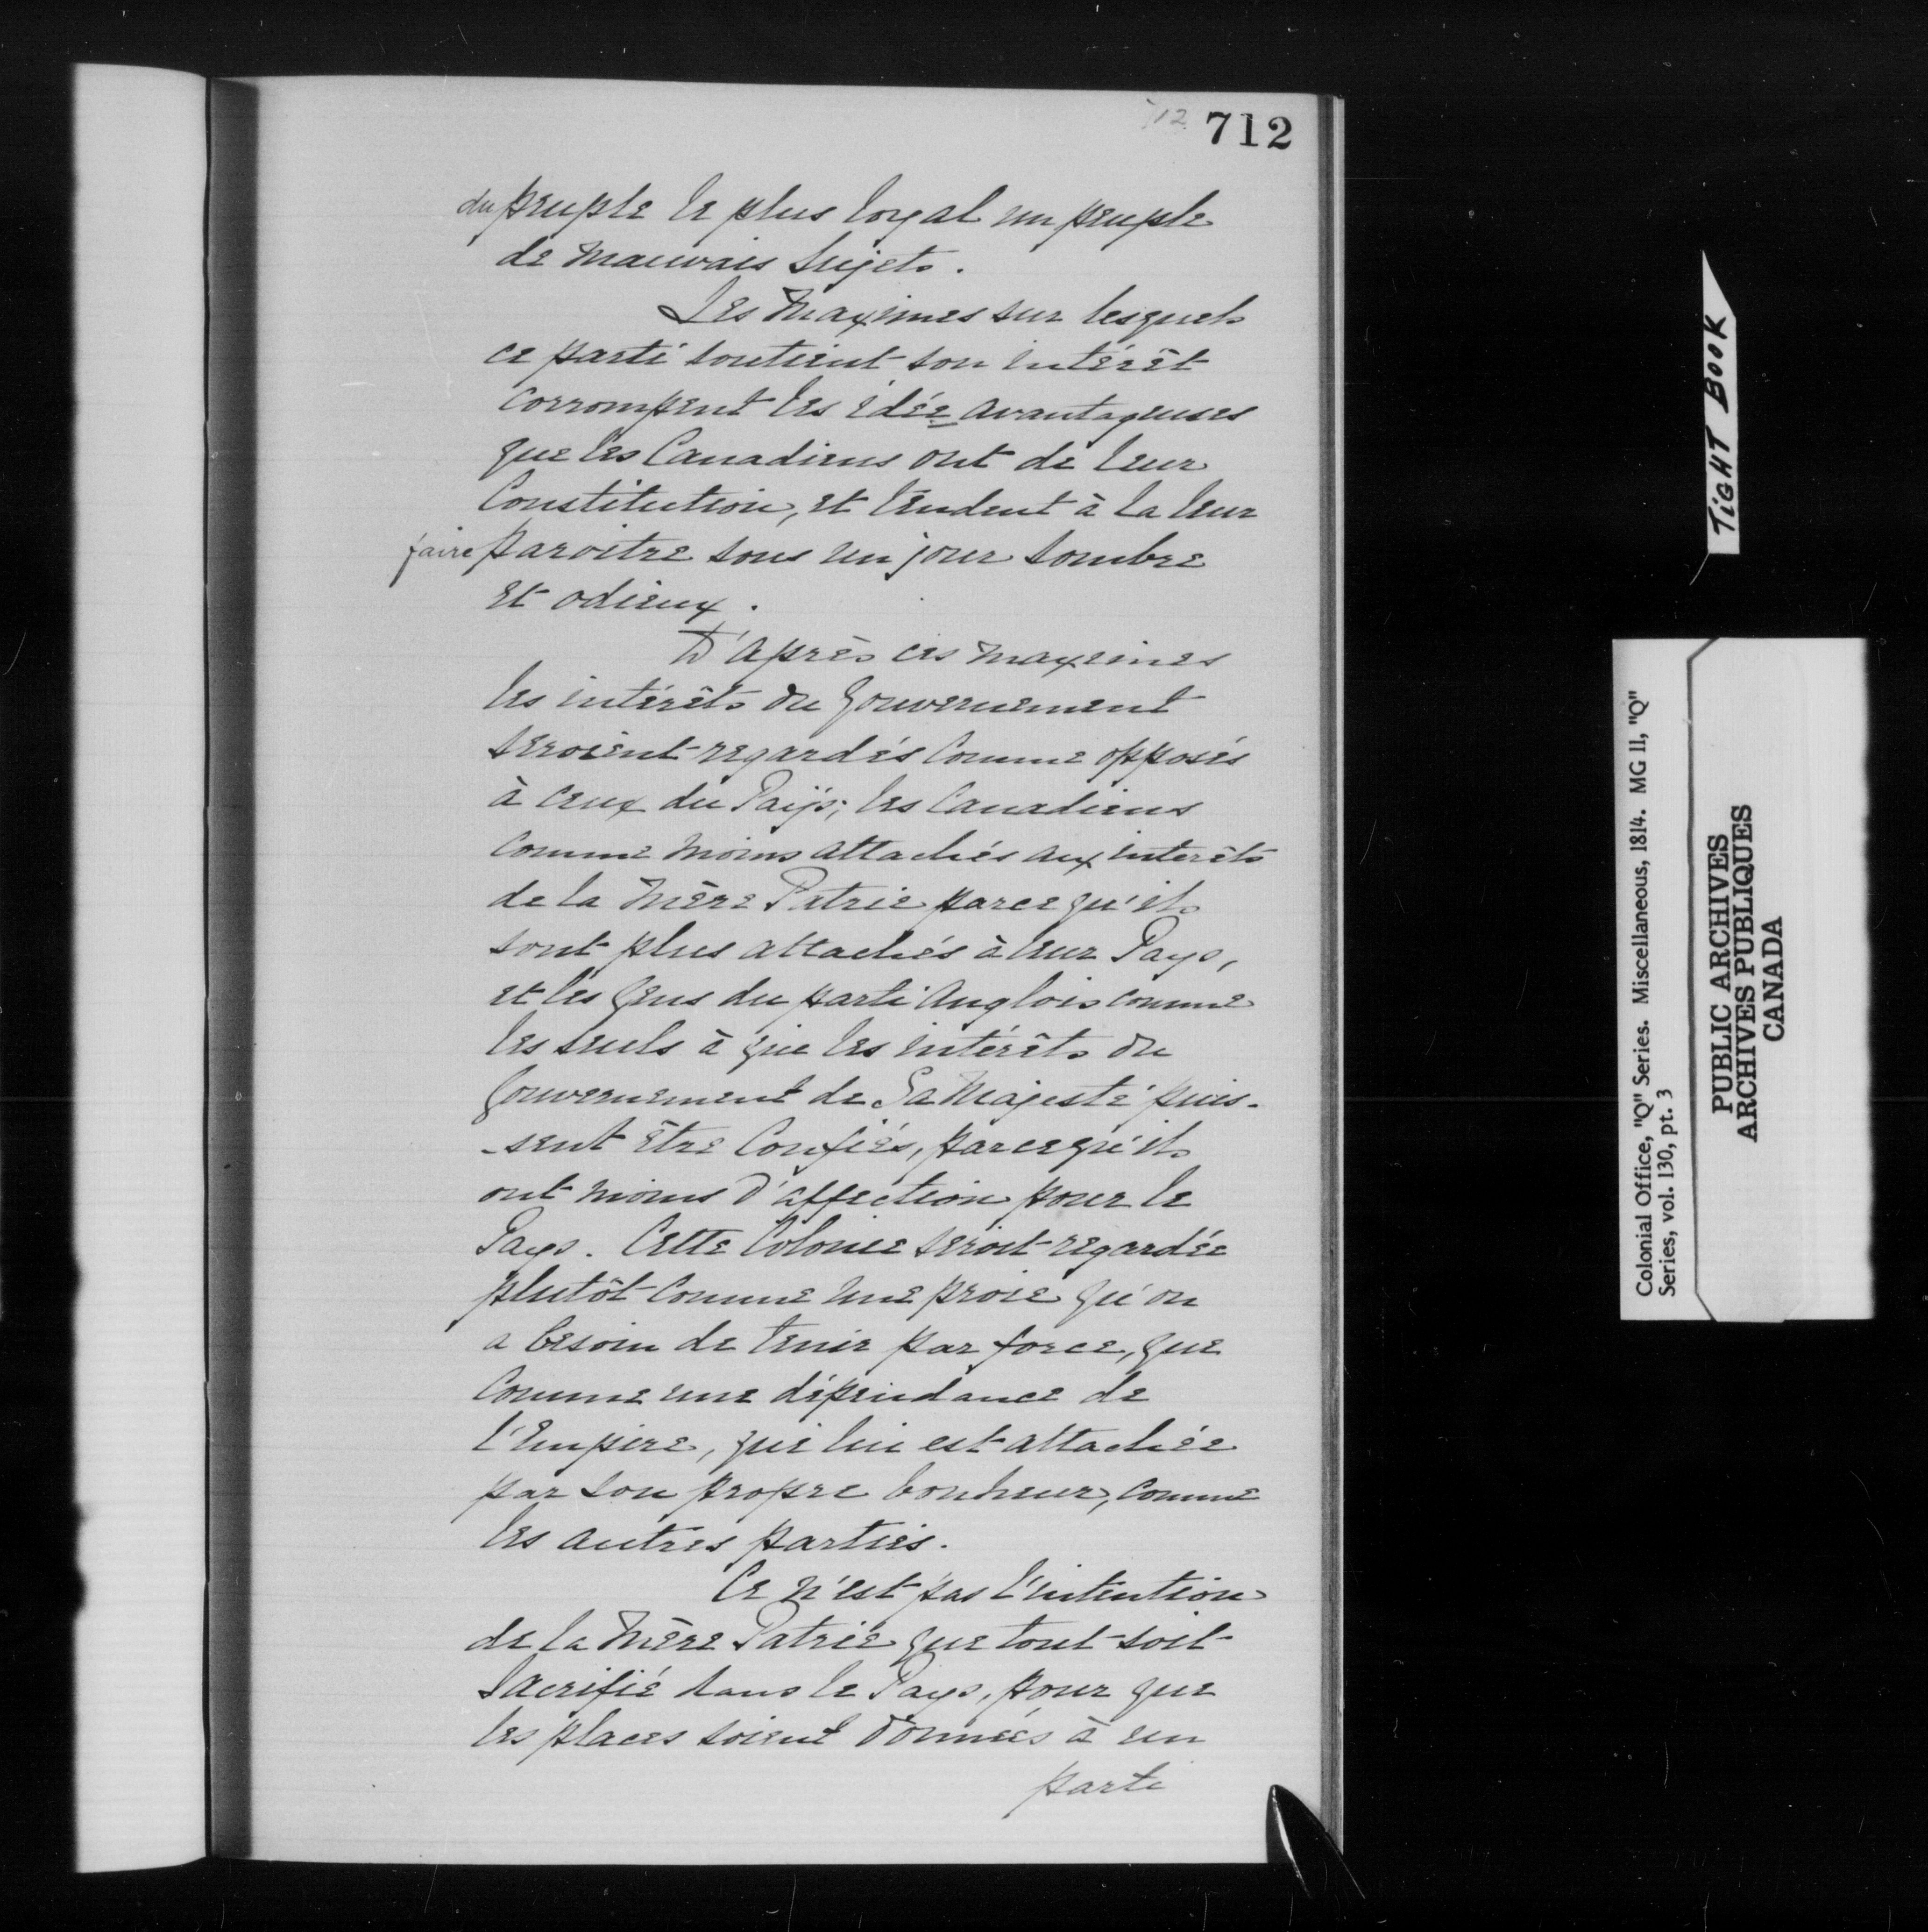 12 712
du peuple le plus loyal un peuple
de mauvais Sujets.
Les Maximes sur lesquels
ce parti soutient son intérêt
corrompent les idée avantageuses
que les Canadiens ont de leur
Constitution, et tendent à la leur
faire paroitre sous un jour sombre
et odieux.
D'après ces maximes
les intérêts du Gouvernement
seroient regardés comme opposés
à ceux du Païs; les Canadiens
comme moins attachés aux interêts
de la Mère Patrie parce qu'ils
sont plus attachés à leur Pays,
et les Gens du parti Anglois comme
les seuls à qui les intérêts du
Gouvernement de Sa Majesté puis-
-sent être Confiés, parcequ'ils
ont moins d'affection pour le
Pays. Cette Colonie seroit regardée
plutôt comme une proie qu'on
a besoin de tenir par force, que
comme une dépendance de
l'Empire, qui lui est attachée
par son propre bonheur, comme
les autres parties.
Ce n'est pas l'intention
de la Mère Patrie que tout soit
Sacrifié dans le Pays, pour que
les places soient données à un
parti
TIGHT BOOK
Colonial Office, "Q" Series. Miscellaneous, 1814. MG 11, "Q"
Series, vol. 130, pt. 3
PUBLIC ARCHIVES
ARCHIVES PUBLIQUES
CANADA